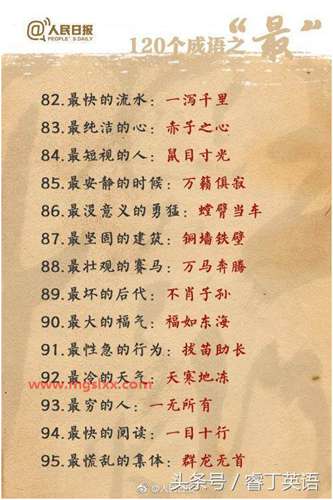 @人民日报
PEOPLE'S DAILY
120个成语之“最”
82.最快的流水：一泻千里
83.最纯洁的心：赤子之心
84.最短视的人：鼠目寸光
85.最安静的时候：万籁俱寂
86.最没意义的勇猛：螳臂当车
87.最坚固的建筑：铜墙铁壁
88.最壮观的赛马：万马奔腾
89.最坏的后代：不肖子孙
90.最大的福气：福如东海
91.最性急的行为：拔苗助长
www.mgslxx.com
92.最冷的天气：天寒地冻
93.最穷的人：一无所有
94.最快的阅读：一目十行
95.最慌乱的集体：群龙无首
@人民日报
头条号/睿丁英语